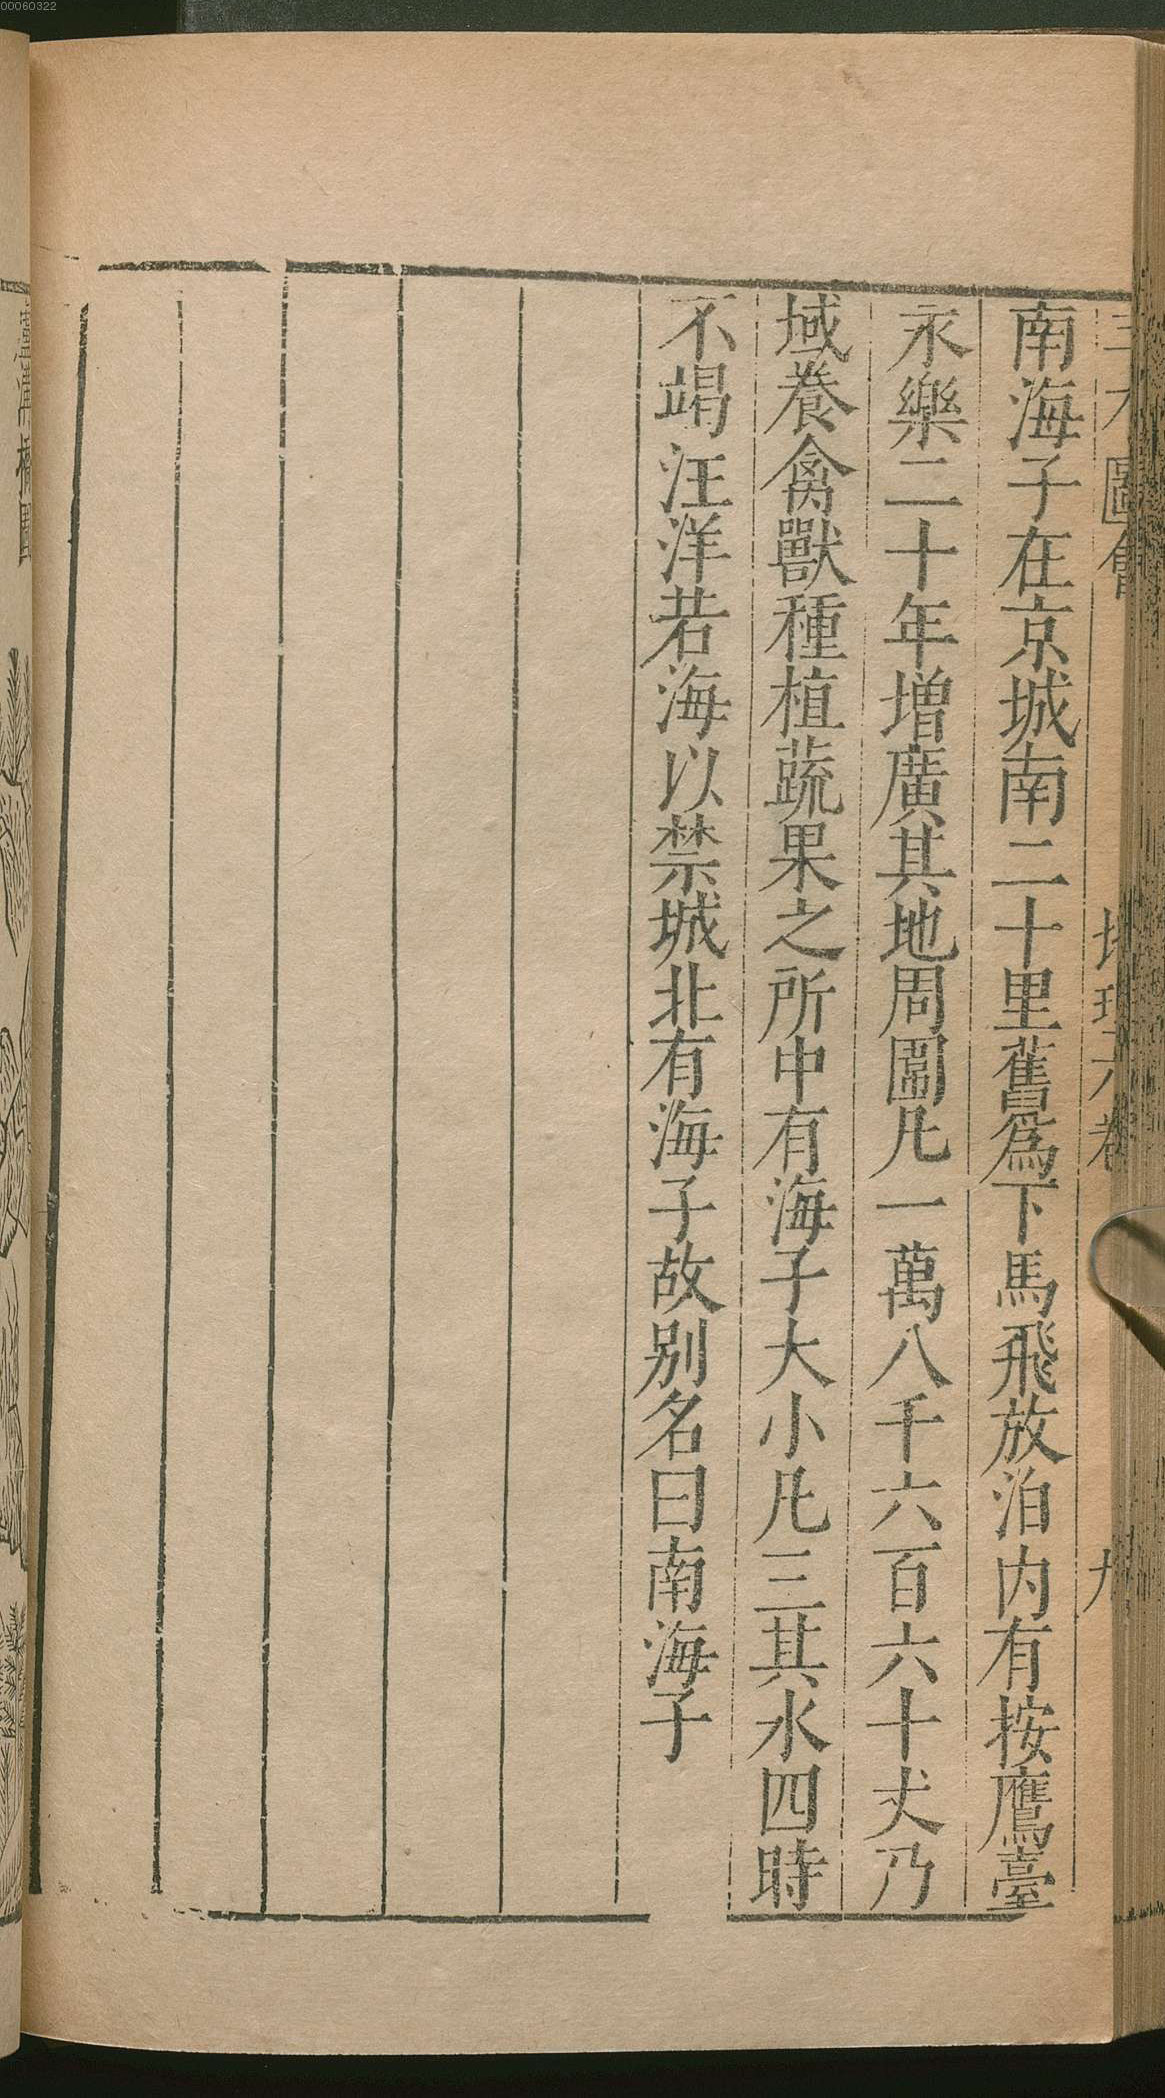 00060322
圖會
地理六卷
南海子在京城南二十里舊爲下馬飛放泊内有按鷹臺
永樂二十年增廣其地周圍凡一萬八千六百六十丈乃
域養禽獸種植蔬果之所中有海子大小凡三其水四時
不竭汪洋若海以禁城北有海子故别名曰南海子